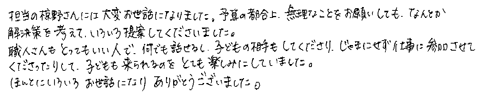 担当の槙野さんには大変お世話になりました。予算の都合上、無理なことをお願いしても、なんとか
解決策を考えて、いろいろ提案してくださいました。
職人さんもとってもいい人で、何でも話せるし、子どもの相手もしてくださり、じゃまにせず仕事に参加させて
くださったりして、子どもも来られるのをとても楽しみにしていました。
ほんとにいろいろお世話になりありがとうございました。